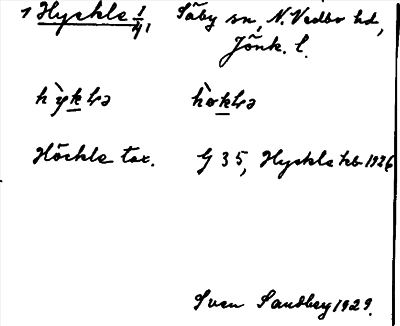 1 Hyckle 1/41 Säby sn, N. Vedbo hd,
Jönk. l.
Höckle tax. G 35, Hyckle hb 1926
Sven Sandberg 1929.